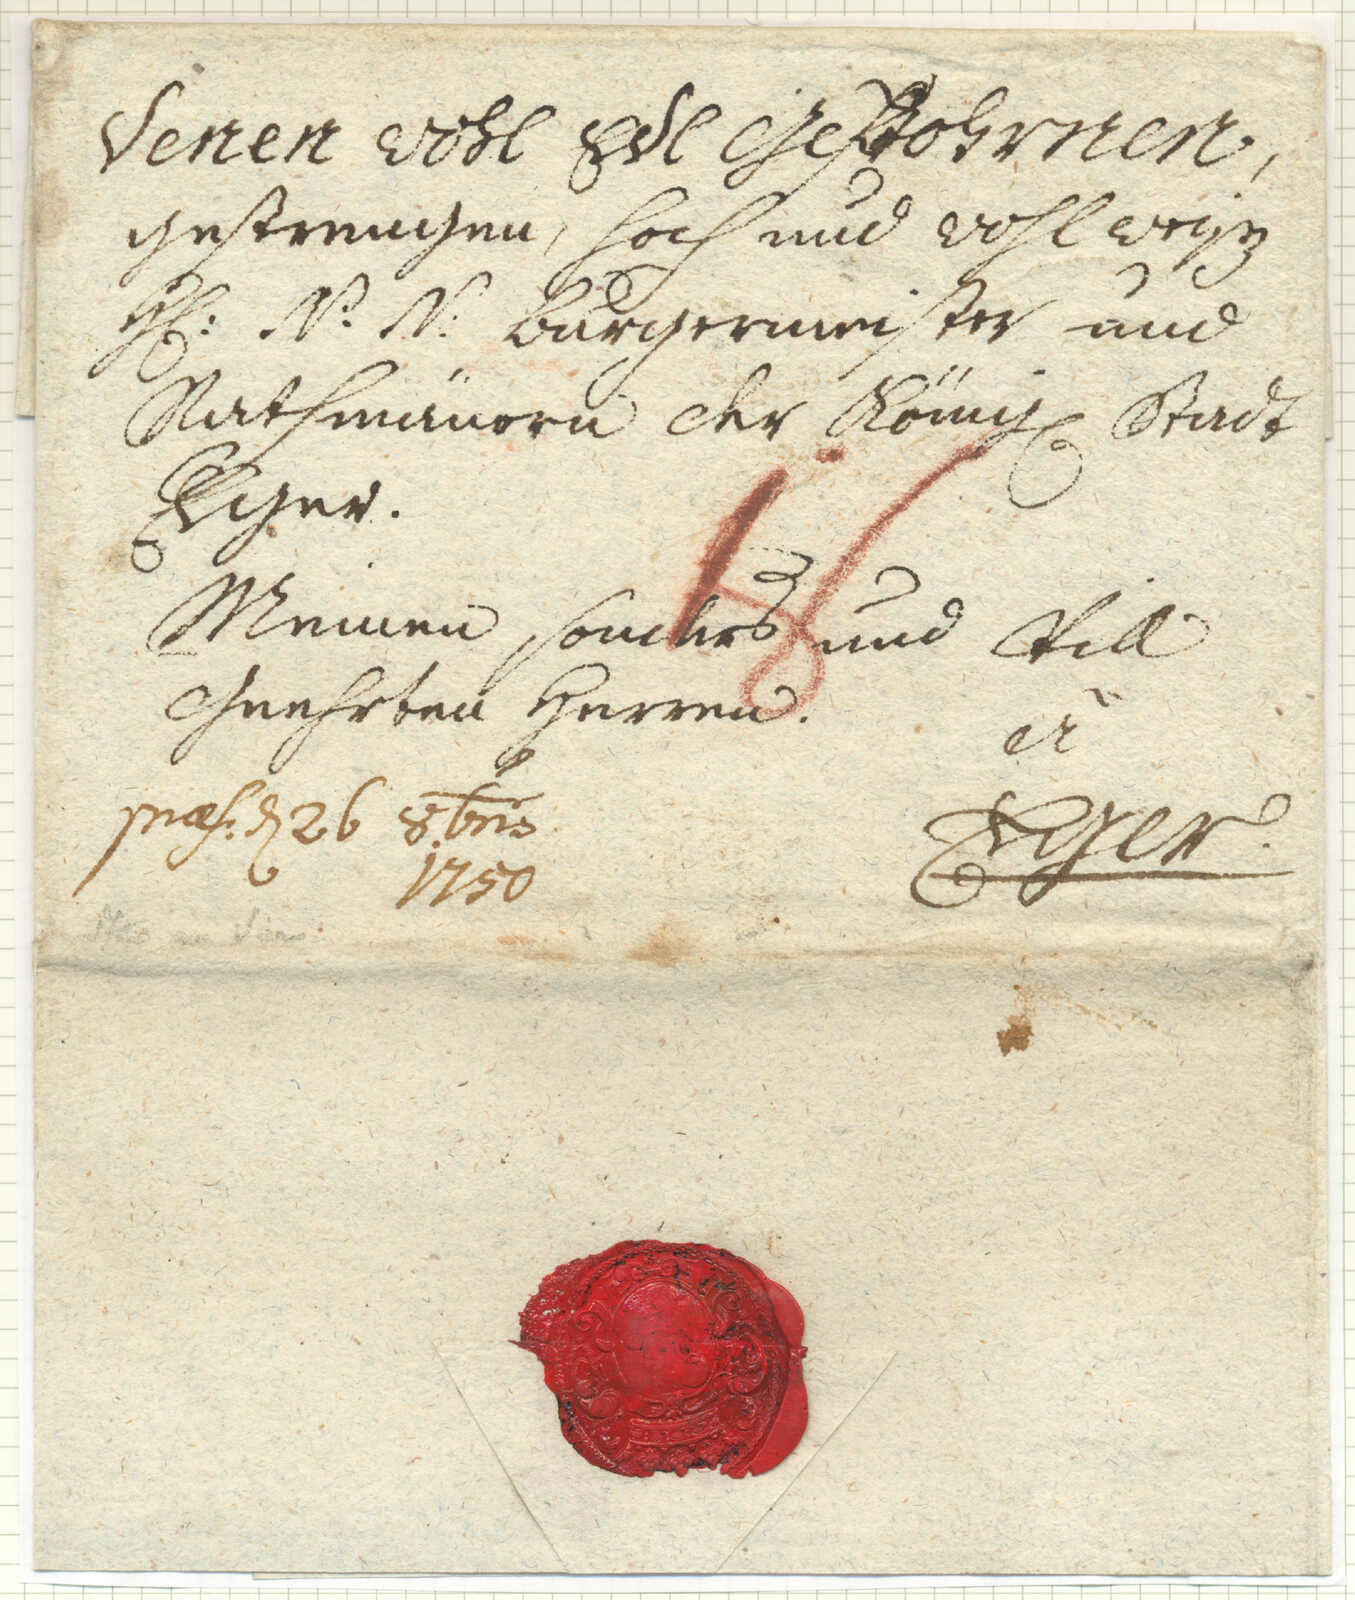 Denen wohl Edl Gebohrnen,
gestrengen, hoch und wohl weiß
H: N. N. Burgermeister und
Rathmänern der König Stadt
Eger.
Meinen sonders und Vill
Geehrten Herren.
à
Eger.
præs: d 26 8bris
1750